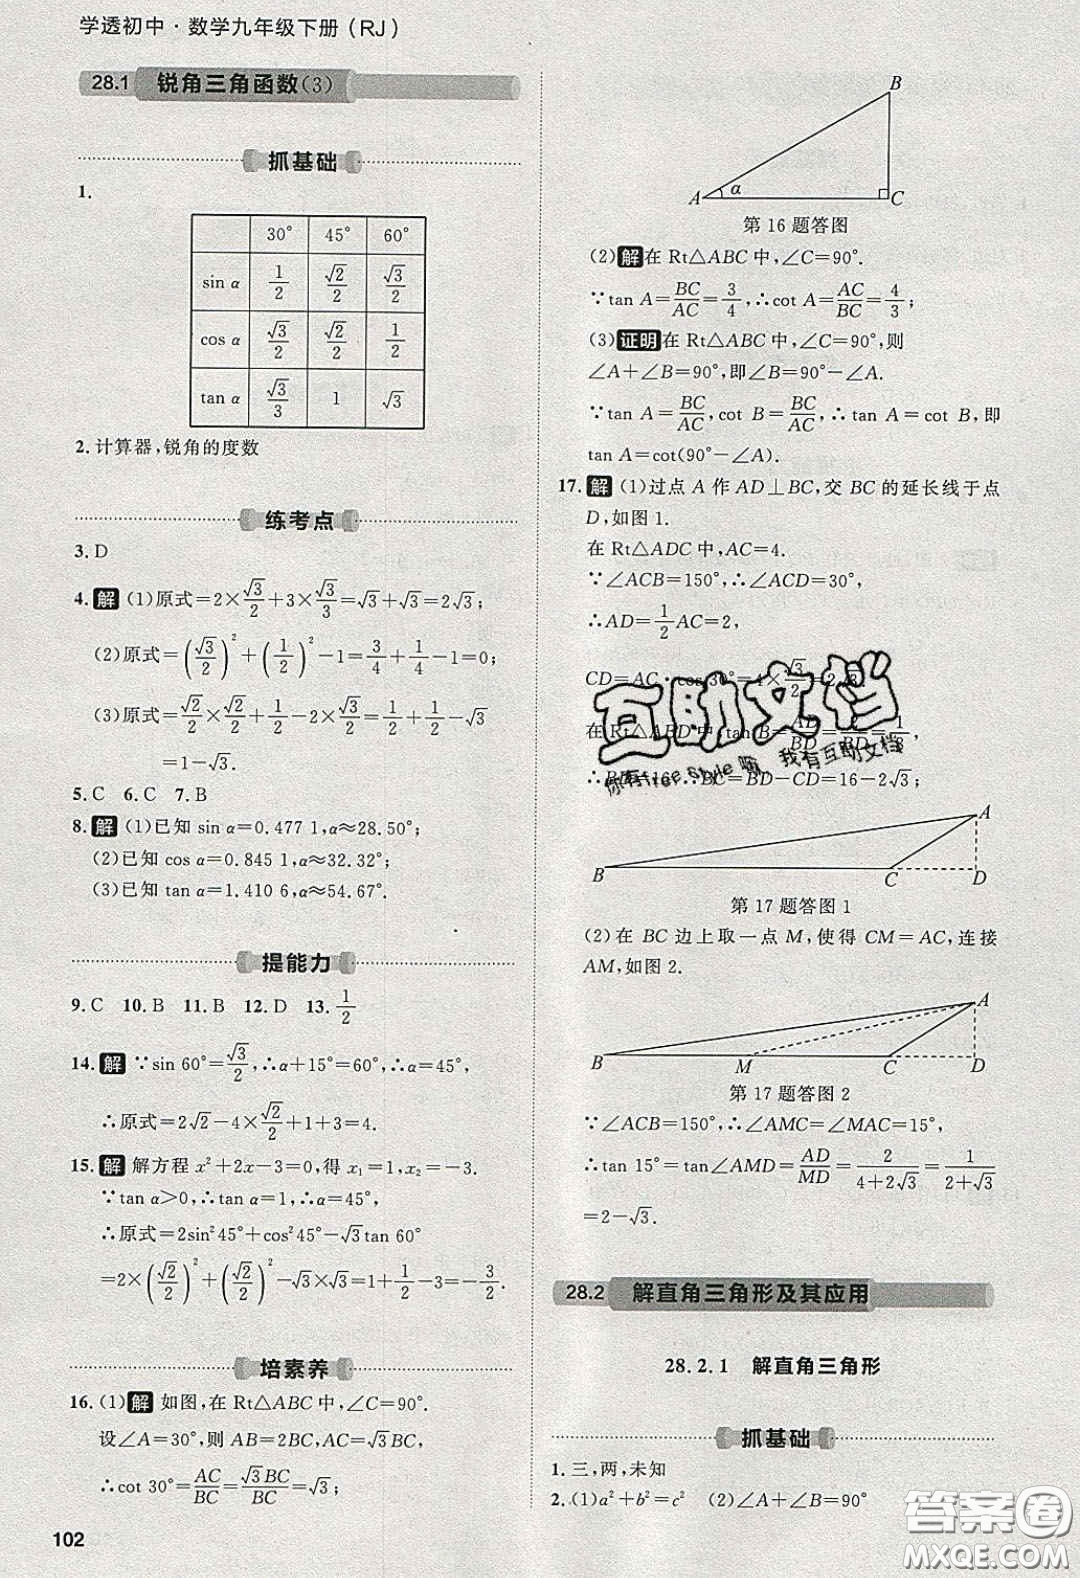 学透初中·数学九年级下册(RJ)
28.1 锐角三角函数(3)
抓基础
1.
30° 45° 60°
sin α 1/2 √2/2 √3/2
cos α √3/2 √2/2 1/2
tan α √3/3 1 √3
2.计算器,锐角的度数
练考点
3.D
4.解 (1)原式=2×√3/2+3×√3/3=√3+√3=2√3;
(2)原式=(√3/2)²+(1/2)²-1=3/4+1/4-1=0;
(3)原式=√2/2×√2/2+1/2-2×√3/2=1/2+1/2-√3
=1-√3.
5.C 6.C 7.B
8.解 (1)已知 sin α=0.477 1,α≈28.50°;
(2)已知 cos α=0.845 1,α≈32.32°;
(3)已知 tan α=1.410 6,α≈54.67°.
提能力
9.C 10.B 11.B 12.D 13.1/2
14.解 ∵sin 60°=√3/2,∴α+15°=60°,∴α=45°,
∴原式=2√2-4×√2/2+1+3=4.
15.解 解方程 x²+2x-3=0,得 x₁=1,x₂=-3.
∵tan α>0,∴tan α=1,∴α=45°,
∴原式=2sin²45°+cos²45°-√3tan 60°
=2×(√2/2)²+(√2/2)²-√3×√3=1+1/2-3=-3/2.
培素养
16.(1)解 如图,在 Rt△ABC 中,∠C=90°.
设∠A=30°,则 AB=2BC,AC=√3BC,
∴cot 30°=AC/BC=√3BC/BC=√3;
102
B
A α C
第 16 题答图
(2)解 在 Rt△ABC 中,∠C=90°.
∵tan A=BC/AC=3/4,∴cot A=AC/BC=4/3;
(3)证明 在 Rt△ABC 中,∠C=90°,则
∠A+∠B=90°,即∠B=90°-∠A.
∵tan A=BC/AC,cot B=BC/AC,∴tan A=cot B,即
tan A=cot(90°-∠A).
17.解 (1)过点 A 作 AD⊥BC,交 BC 的延长线于点
D,如图 1.
在 Rt△ADC 中,AC=4.
∵∠ACB=150°,∴∠ACD=30°,
∴AD=1/2AC=2,
CD=AC·cos 30°=4×√3/2=2√3.
在 Rt△ABD 中,tan B=AD/BD=2/BD=1/8,
∴BD=16,∴BC=BD-CD=16-2√3.
互助文档
你有free style嘛 我有互助文档
A
B C D
第 17 题答图 1
(2)在 BC 边上取一点 M,使得 CM=AC,连接
AM,如图 2.
A
B M C D
第 17 题答图 2
∵∠ACB=150°,∴∠AMC=∠MAC=15°,
∴tan 15°=tan∠AMD=AD/MD=2/(4+2√3)=1/(2+√3)
=2-√3.
28.2 解直角三角形及其应用
28.2.1 解直角三角形
抓基础
1.三,两,未知
2.(1)a²+b²=c² (2)∠A+∠B=90°
答案圈
MXQE.COM